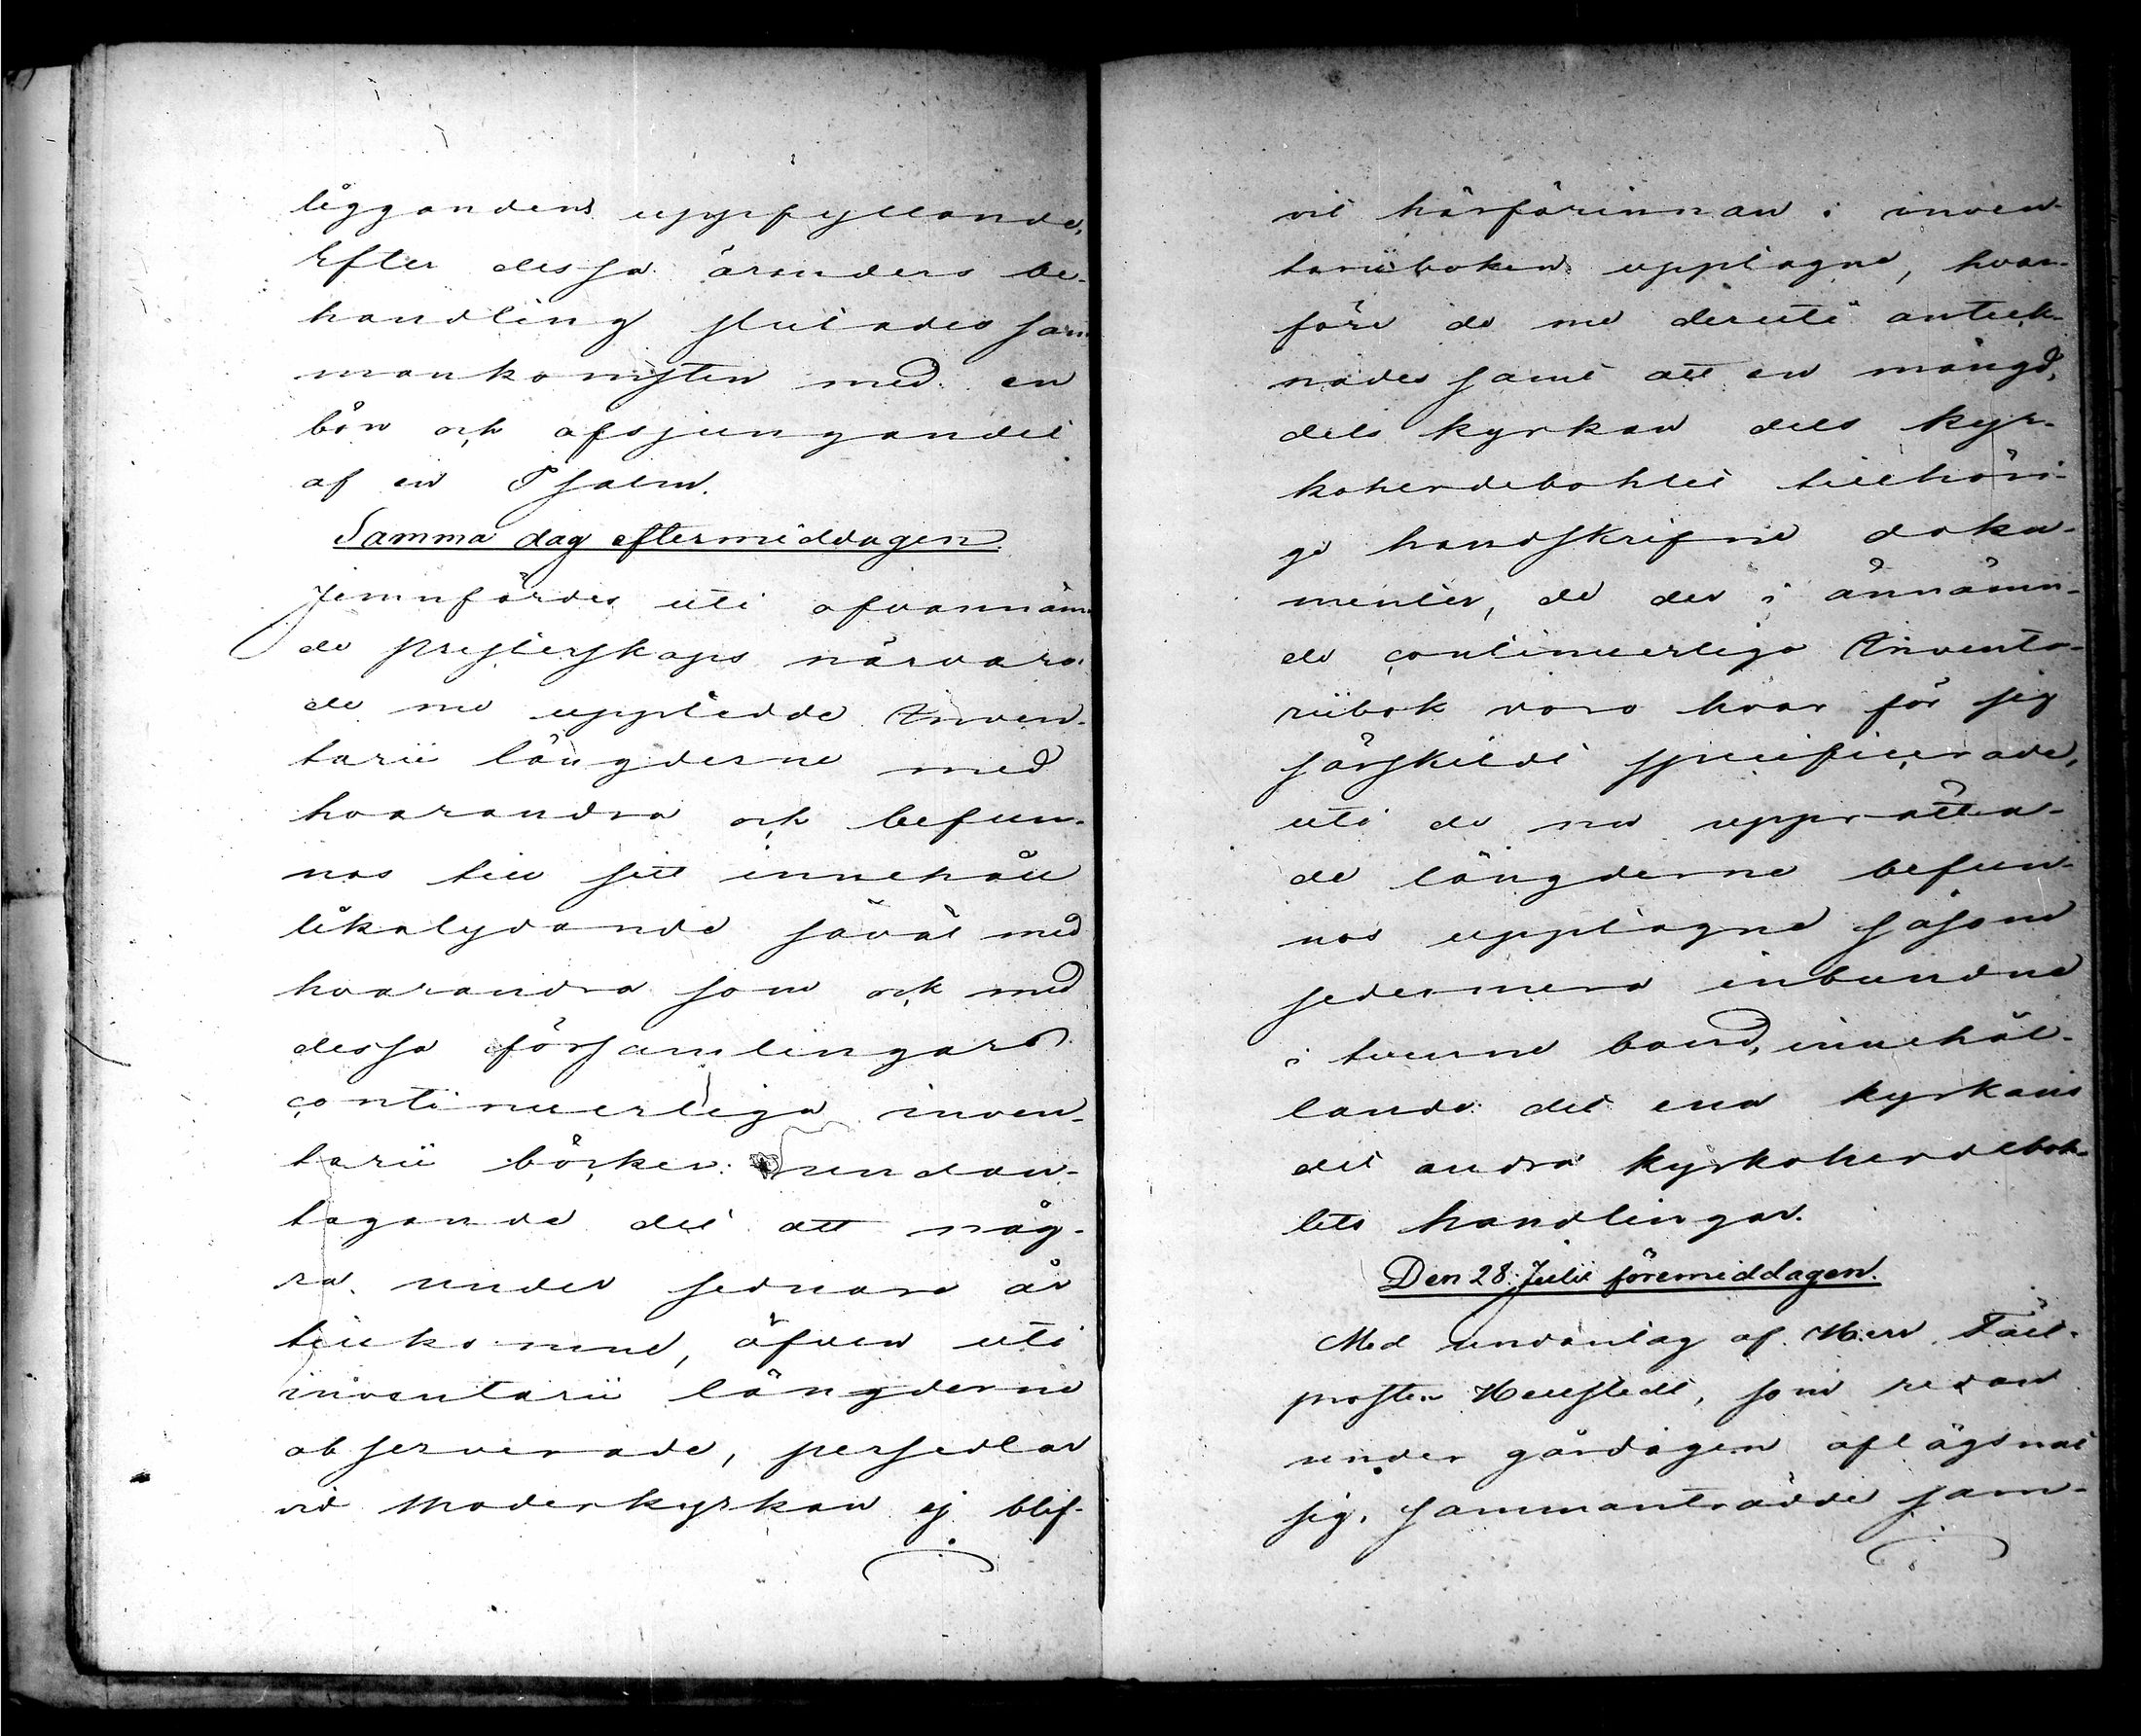 liggandens uppfyllande.
Efter dessa ärenders be-
handling slutades sam
mankomsten med en
bön och afsjungandet
af en Psalm.
Samma dag eftermiddagen.
Jemnfördes uti ofvannäm
de presterskaps närvaro
de nu upplästa Inven-
tarii längderne med
hvarandra och befun-
nos till sitt innehåll
likalydande såväl med
hvarandra som ock med
dessa församlingars
continuerliga inven-
tarii böcker undan-
tagande det att någ-
ra under sednare år
tillkomne, äfven uti
inventarii längderne
observerade, persedlar
vid Moderkyrkan ej blif-
vit härförinnan i inven-
tarii boken upptagne, hvar-
före de nu deruti anteck-
nades samt att en mängd,
dels kyrkan dels kyr-
koherdebohlet tillhöri-
ge handskrifne doku-
menter, de der i ännämn-
de continuerliga Inventa-
riibok voro hvar för sig
särskildt specificerade,
uti de nu upprätta-
de längderne befun-
nos upptagne såsom
sedermera inbundne
i tvenne band, innehål-
lande det ena kyrkans
det andra kyrkoherdeboh-
lets handlingar.
Den 28. Julii föremiddagen.
Med undantag af Herr Fält-
prosten Hellstedt, som redan
under gårdagen aflägsnat
sig, sammanträdde sam-